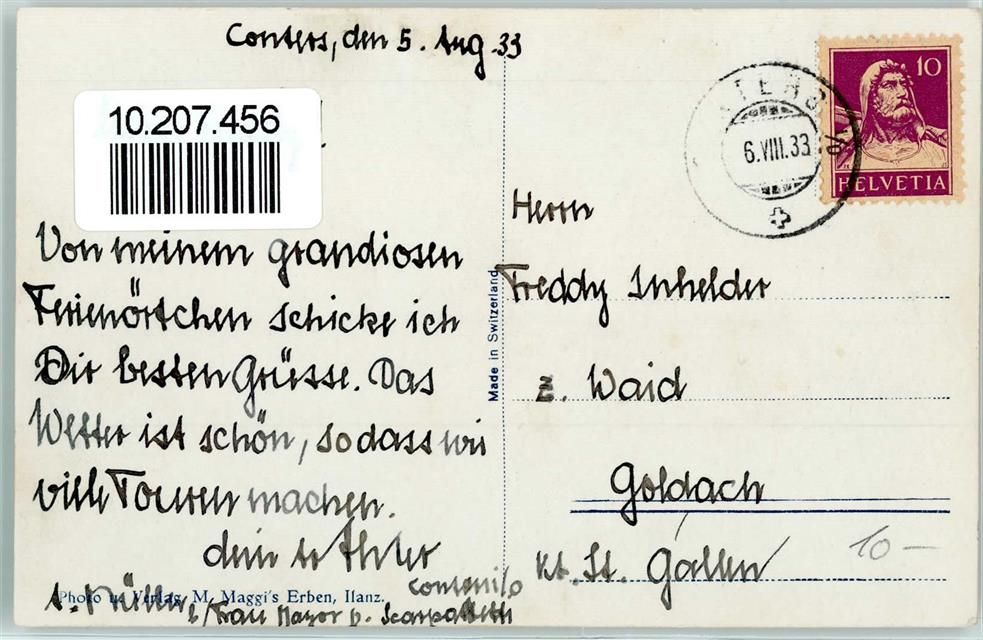 Conters, den 5. Aug. 33
10.207.456
Von meinem grandiosen
Ferienörtchen schicke ich
Dir besten Grüsse. Das
Wetter ist schön, sodass wir
viele Touren machen.
Photo u. Verlag M. Maggi's Erben, Ilanz.
A. Müller, b/Frau
Made in Switzerland
6.VIII.33
10
HELVETIA
Herrn
Freddy Inhelder
z. Waid
Goldach
Kt. St. Gallen
10 –